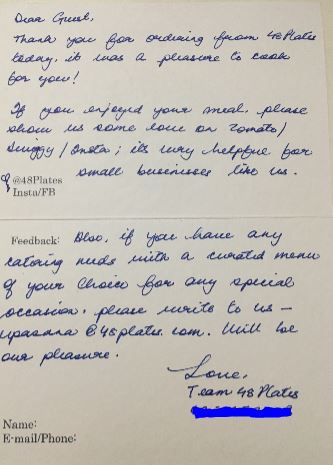 Dear Guest,
Thank you for ordering from 48Plates
today, it was a pleasure to cook
for you!
If you enjoyed your meal, please
show us some love on Zomato/
Swiggy / Insta ; its very helpful for
small businesses like us.
@48Plates
Insta/FB
Feedback: Also, if you have any
catering needs with a curated menu
of your choice for any special
occasion, please write to us —
upasana@48plates.com. Will be
our pleasure.
Love,
Team 48 Plates
Name:
E-mail/Phone: